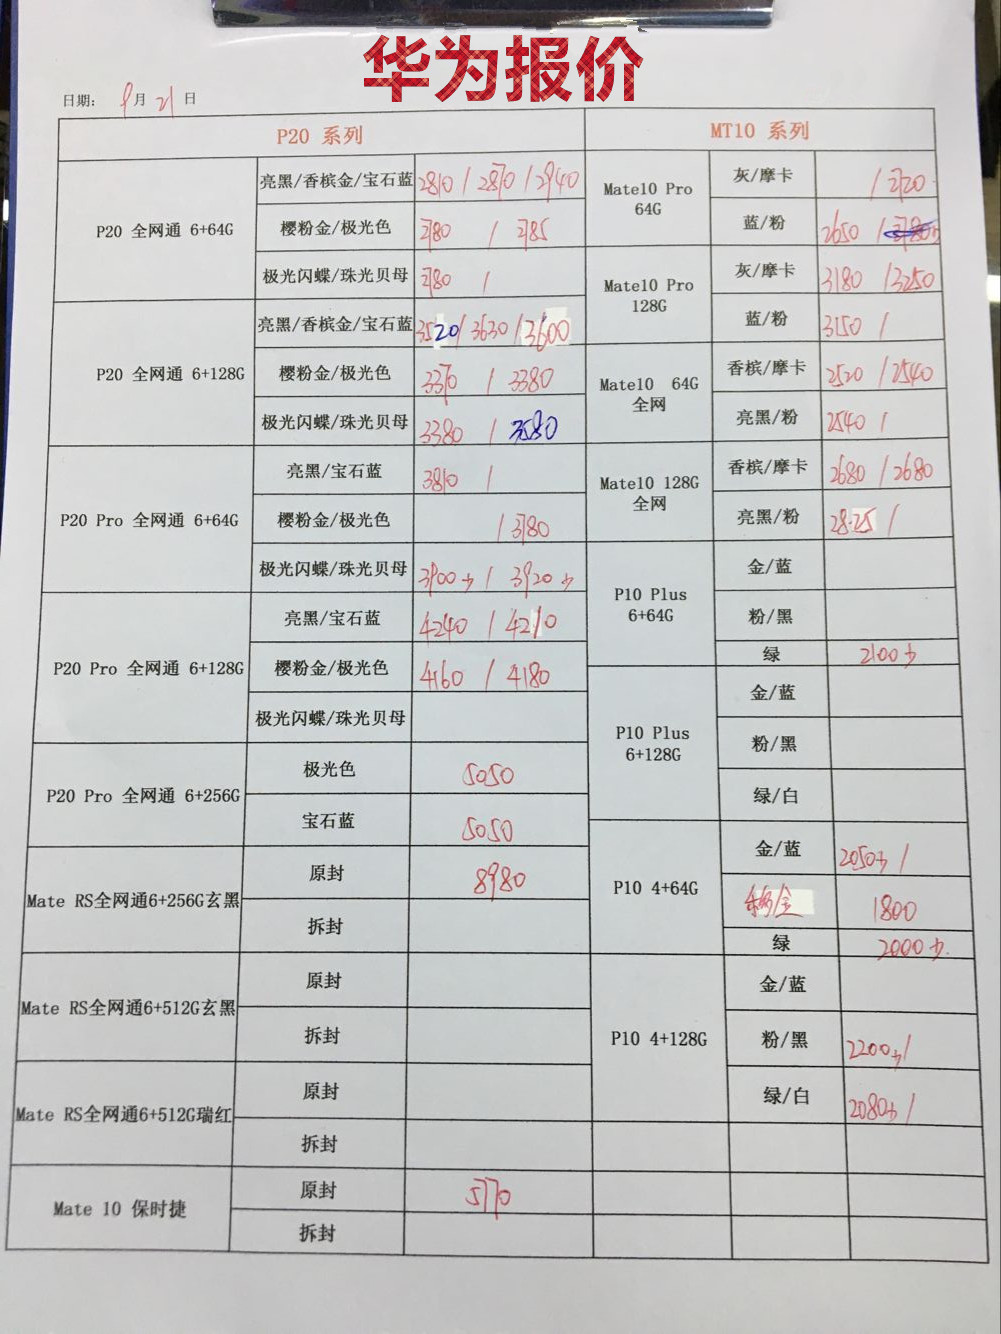 华为报价
日期: 9月21日
P20 系列
MT10 系列
P20 全网通 6+64G
亮黑/香槟金/宝石蓝 2810 / 2870 / 2940
樱粉金/极光色 2780 / 2785
极光闪蝶/珠光贝母 2780 /
P20 全网通 6+128G
亮黑/香槟金/宝石蓝 3520 / 3630 / 3600
樱粉金/极光色 3370 / 3380
极光闪蝶/珠光贝母 3380 / 3580
P20 Pro 全网通 6+64G
亮黑/宝石蓝 3810 /
樱粉金/极光色 / 3780
极光闪蝶/珠光贝母 3900少 / 3920少
P20 Pro 全网通 6+128G
亮黑/宝石蓝 4240 / 4210
樱粉金/极光色 4160 / 4180
极光闪蝶/珠光贝母
P20 Pro 全网通 6+256G
极光色 5050
宝石蓝 5050
Mate RS全网通6+256G玄黑
原封 8980
拆封
Mate RS全网通6+512G玄黑
原封
拆封
Mate RS全网通6+512G瑞红
原封
拆封
Mate 10 保时捷
原封 5770
拆封
Mate10 Pro
64G
灰/摩卡 / 2720
蓝/粉 2650 /
Mate10 Pro
128G
灰/摩卡 3180 / 3250
蓝/粉 3150 /
Mate10 64G
全网
香槟/摩卡 2520 / 2540
亮黑/粉 2540 /
Mate10 128G
全网
香槟/摩卡 2680 / 2680
亮黑/粉 2825 /
P10 Plus
6+64G
金/蓝
粉/黑
绿 2100少
P10 Plus
6+128G
金/蓝
粉/黑
绿/白
P10 4+64G
金/蓝 2050少 /
/金 1800
绿 2000少
P10 4+128G
金/蓝
粉/黑 2200少 /
绿/白 2080少 /